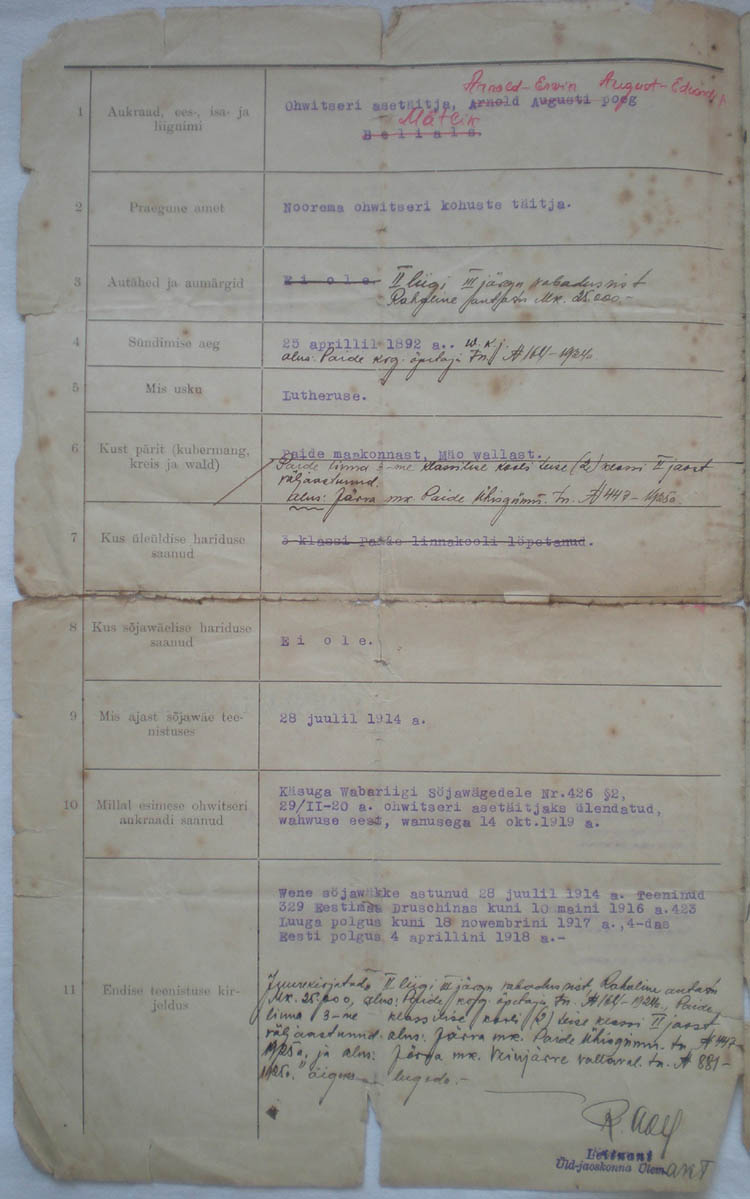 Arnold-Erwin August-Eduardi
1 Aukraad, ees-, isa- ja liignimi
Ohwitseri asetäitja, Arnold Augusti poeg
Mätlik
B e l i a l s.
2 Praegune amet
Noorema ohwitseri kohuste täitja.
3 Autähed ja aumärgid
E i o l e. II liigi III järgu vabadusrist
Rahaline Mk. 25.000.-
4 Sündimise aeg
25 aprillil 1892 a.. w. k. j.
alus: Paide kog. õpetaja Tn. № 164-1924a
5 Mis usku
Lutheruse.
6 Kust pärit (kubermang, kreis ja wald)
Paide maakonnast, Mäo wallast.
Paide linna 3-me klassilise kooli teise (2) klassi II jaost
väljaastunud.
alus: Järva mk. Paide Ühisgümn. tn. № 447-1925a.
7 Kus üleüldise hariduse saanud
3 klassi Paide linnakooli lõpetanud.
8 Kus sõjawäelise hariduse saanud
E i o l e.
9 Mis ajast sõjawäe teenistuses
28 juulil 1914 a.
10 Millal esimese ohwitseri aukraadi saanud
Käsuga Wabariigi Sõjawägedele Nr.426 §2,
29/II-20 a. ohwitseri asetäitjaks ülendatud,
wahwuse eest, wanusega 14 okt.1919 a.
11 Endise teenistuse kirjeldus
Wene sõjawäkke astunud 28 juulil 1914 a. Teeninud
329 Eestimaa Druschinas kuni 10 maini 1916 a.423
Luuga polgus kuni 18 nowembrini 1917 a.,4-das
Eesti polgus 4 aprillini 1918 a.-
Juurekirjutada II liigi III järgu vabadusrist Rahaline
Mk. 25.000, alus: Paide kog. õpetaja Tn. № 164-1924a., Paide
linna 3-me klassilise kooli (2) teise klassi II jaost
väljaastunud. alus: Järva mk. Paide Ühisgümn. tn. № 447-
1925a, ja alus: Järva mk. vallaval. tn. № 881-
1925a." õigeks lugeda.-
Leitnant
Üld-jaoskonna Ülem